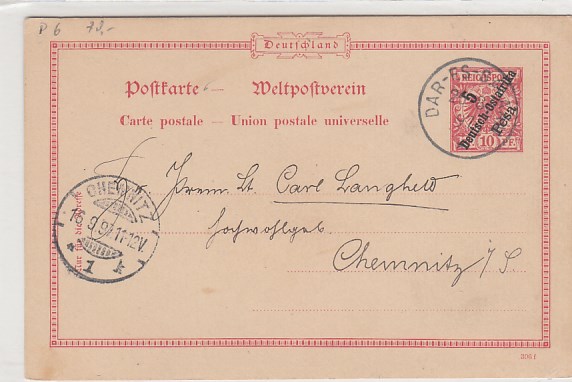 P 6 73,-
Deutschland
Postkarte — Weltpostverein
Carte postale — Union postale universelle
DAR-ES-S
REICHSPOST
5
Deutsch-Ostafrika
Pesa
10 PF.
Prem. Lt. Carl Langheld
Hochwohlgeb.
Chemnitz i/S.
CHEMNITZ
16 9 9 11-12V.
* 1 k
Nur für die Adresse
396 f